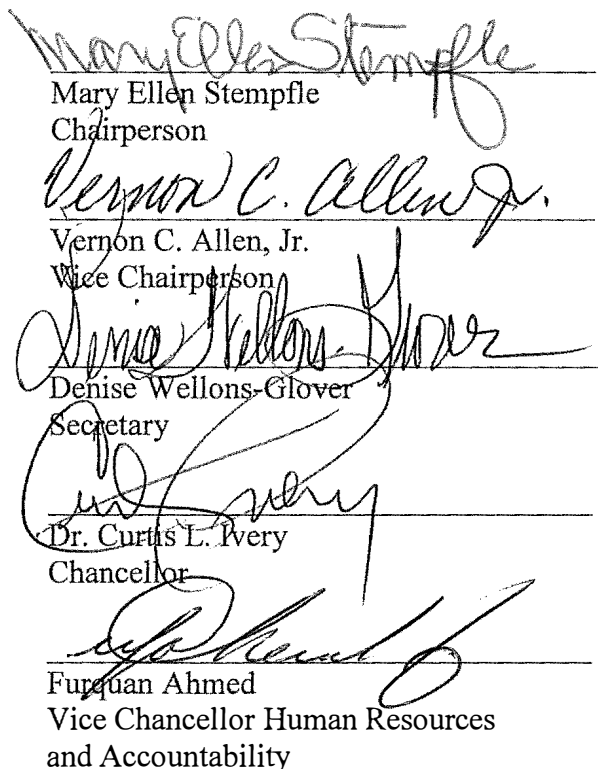 Mary Ellen Stempfle
Mary Ellen Stempfle
Chairperson
Vernon C. Allen Jr.
Vernon C. Allen, Jr.
Vice Chairperson
Denise Wellons-Glover
Denise Wellons-Glover
Secretary
Dr. Curtis L. Ivery
Chancellor
Furquan Ahmed
Vice Chancellor Human Resources
and Accountability